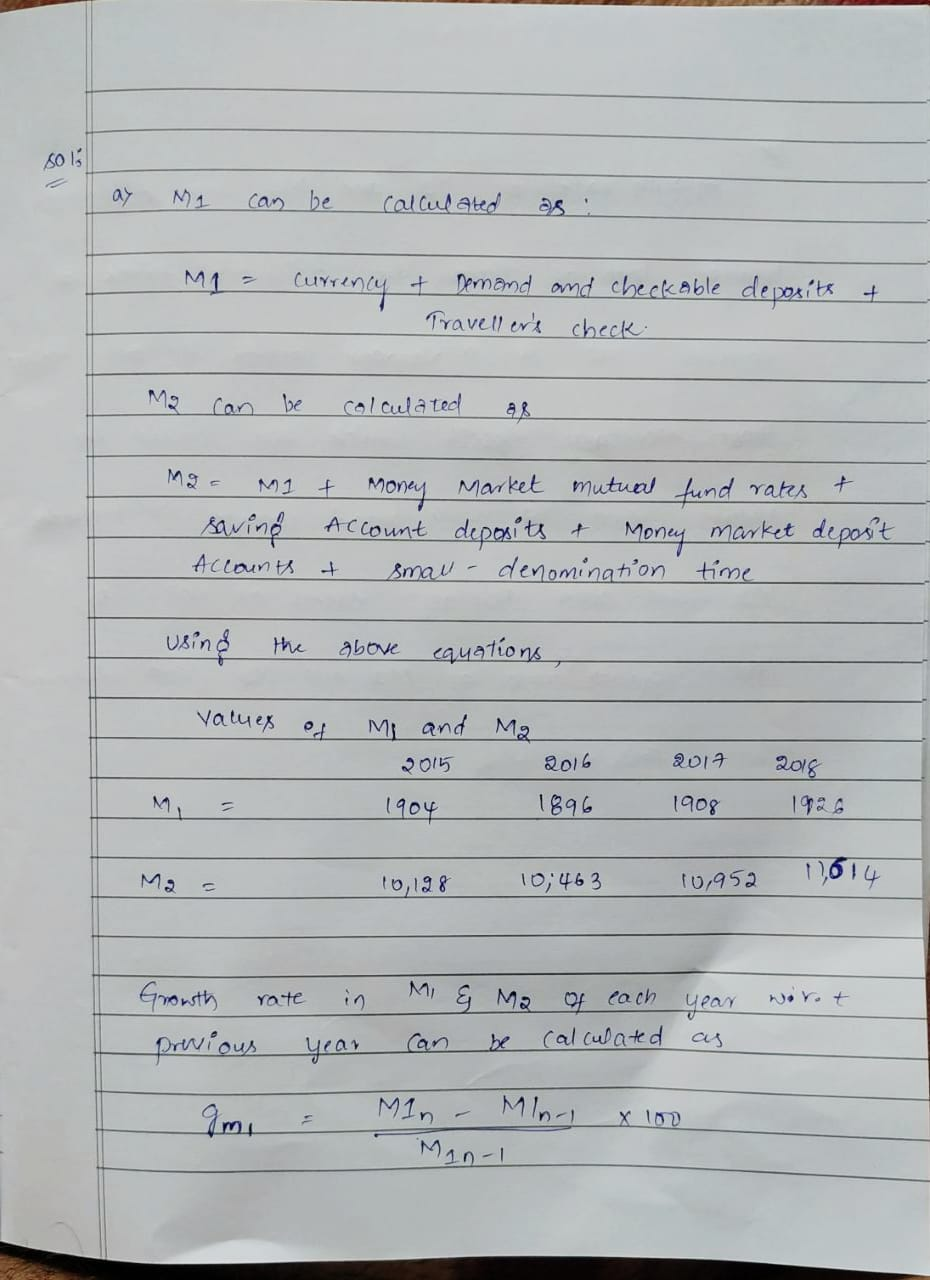 Sol:
a) M1 can be calculated as :
M1 = Currency + Demand and checkable deposits +
Traveller's check.
M2 can be calculated as
M2 = M1 + Money Market mutual fund rates +
saving Account deposits + Money market deposit
Accounts + small - denomination time
Using the above equations,
Values of M1 and M2
2015 2016 2017 2018
M1 = 1904 1896 1908 1926
M2 = 10,128 10,463 10,952 11,614
Growth rate in M1 & M2 of each year w.r.t
previous year can be calculated as
gm1 = M1n - M1n-1 x 100
M1n-1